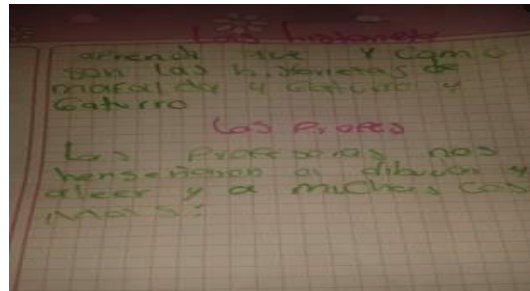 Las historietas
aprendi que y como
son las historietas de
mafalda y Gaturro y
Gaturro
Las Profes
Las Profesoras nos
henseñaron a dibujar y
aleer y a muchas cos
mas: